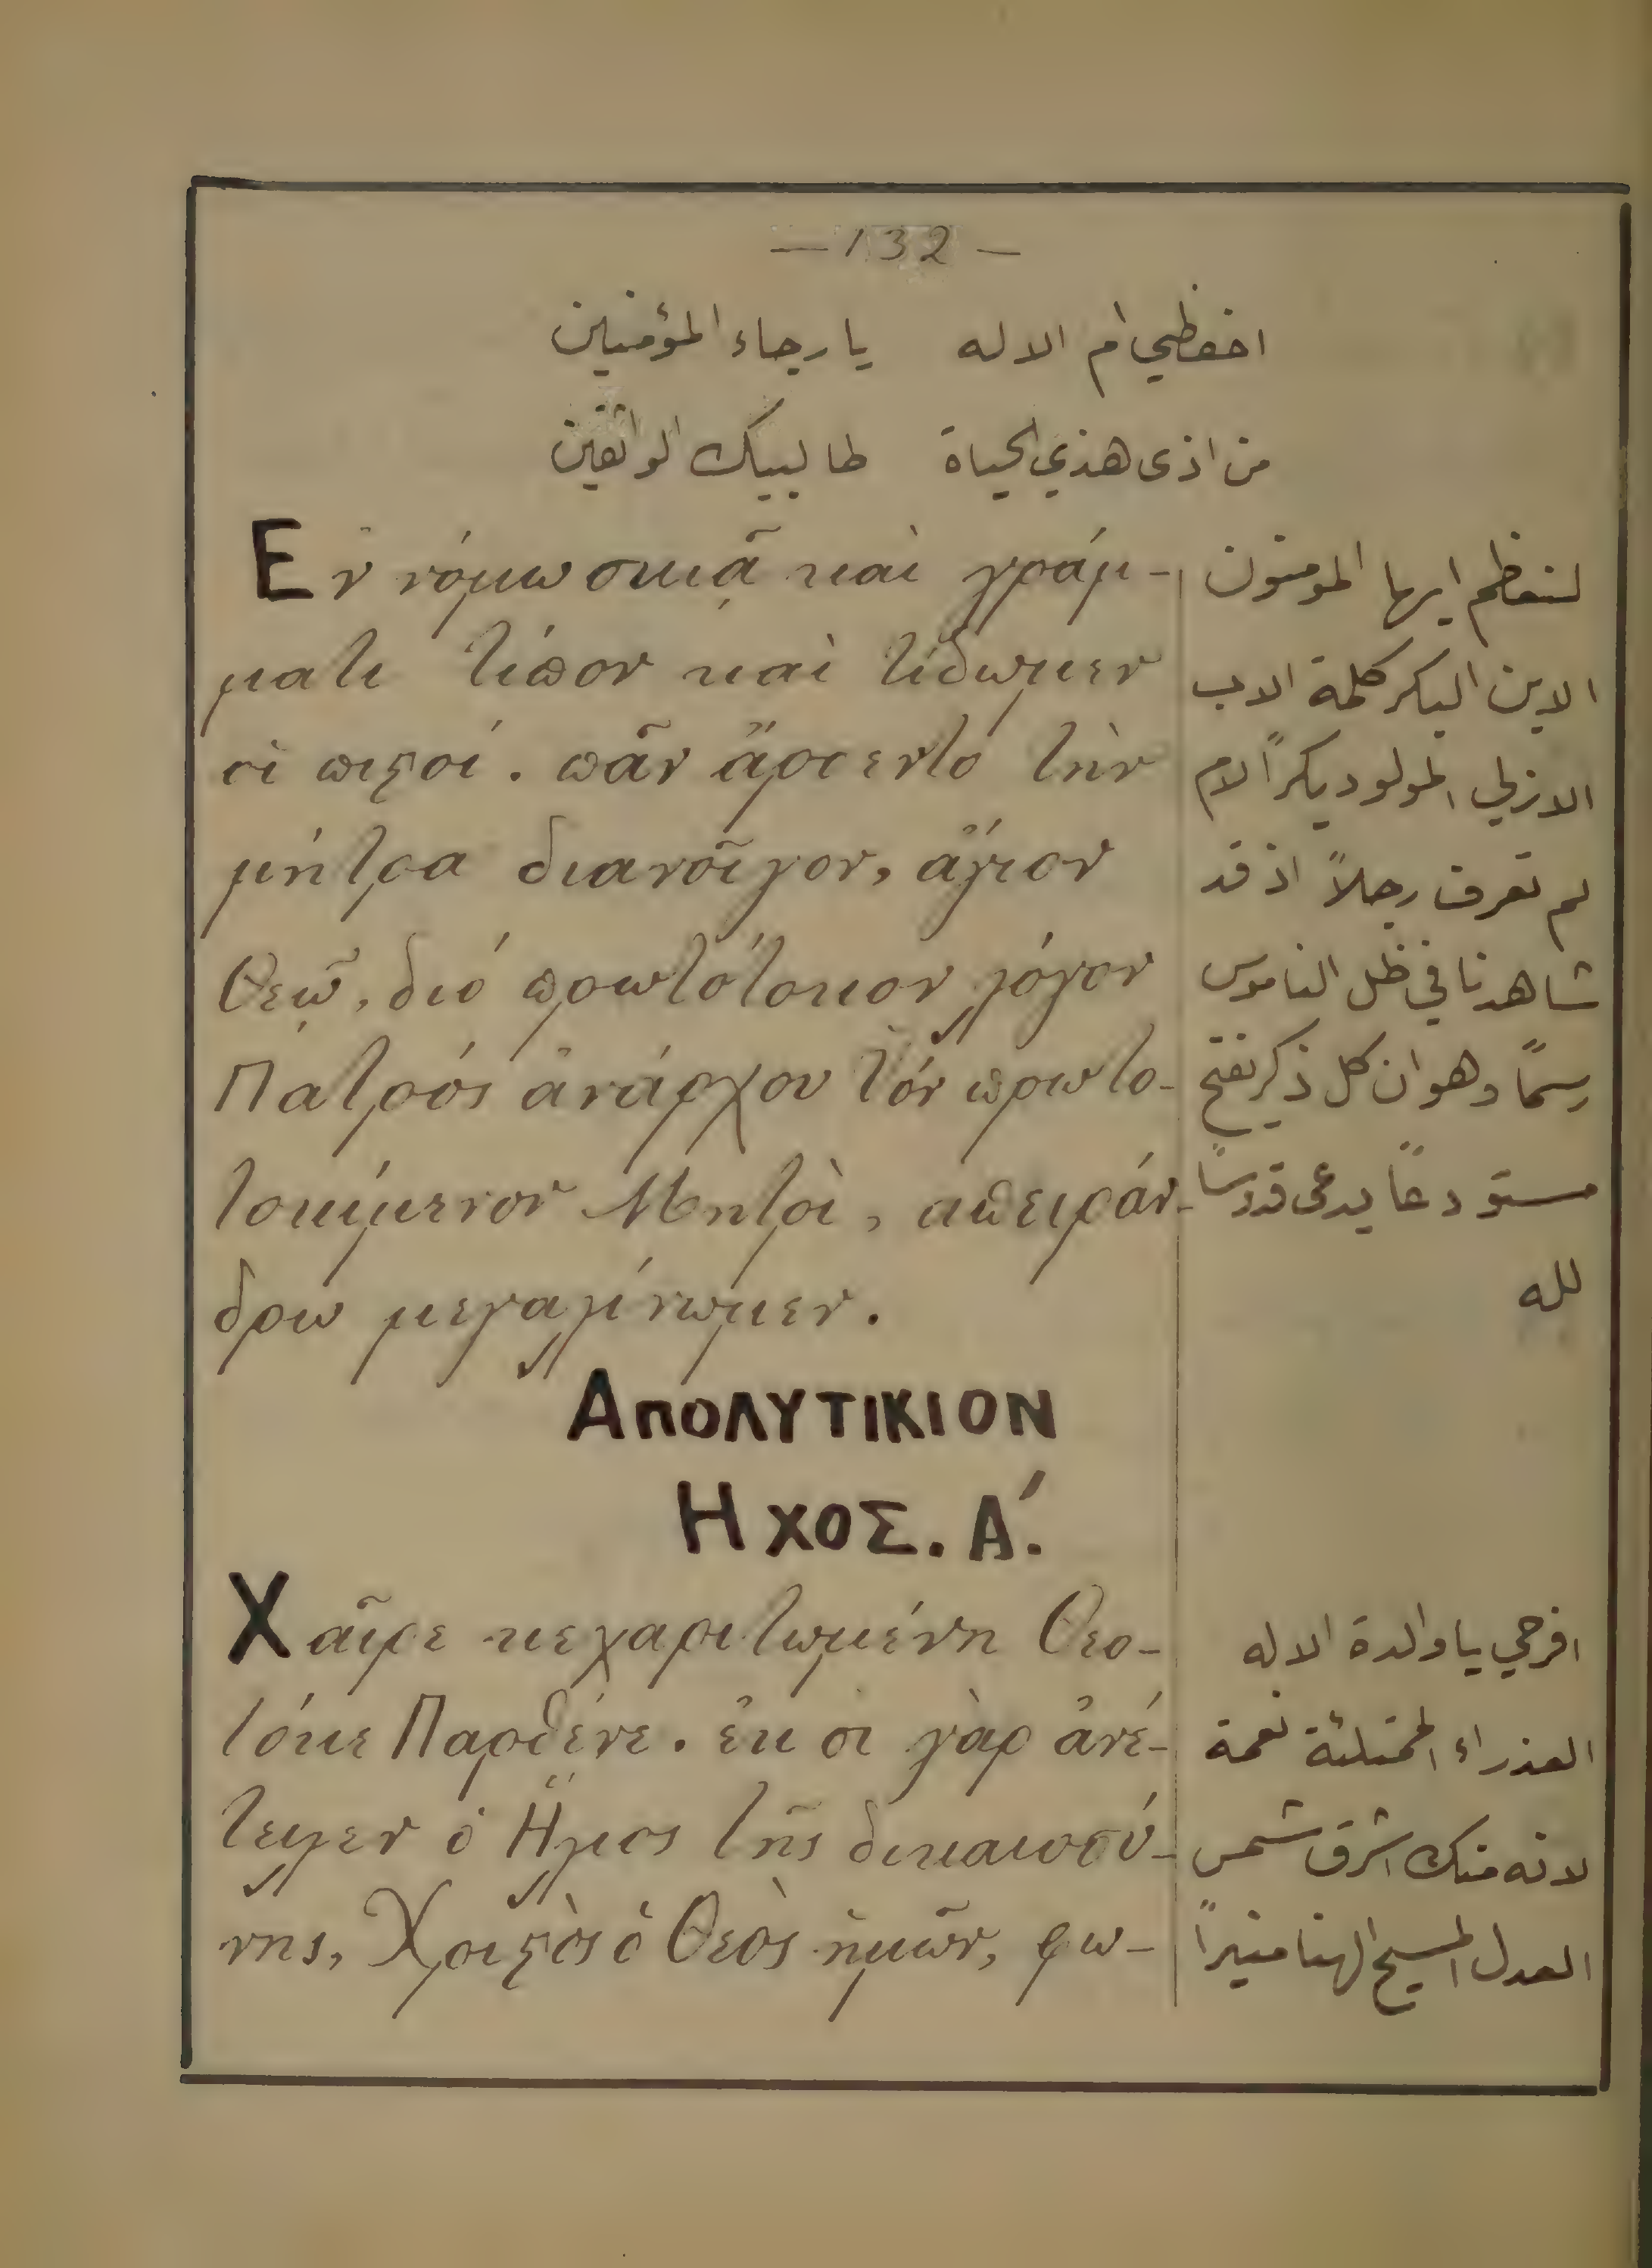 — 132 —
احفظي ام الاله يا رجاء المؤمنين
من اذى هذي الحياة طالبيك الواثقين
Εν νόμω σκιᾷ καὶ γράμ-
ματι τίπον καὶ τιδωμεν
οἱ πιςοί. πᾶν ἄρσεν τὸ τὴν
μήτρα διανοῖγον, ἅγιον
Θεῷ, διό πρωτότοκον λόγον
Πατρός ἀνάρχου τόν πρωτο-
τοκύμενον Μητρὶ, απειράν-
δρω μεγαλίνωμεν.
لنعظم ايها المومنون
الابن البكر كلمة الاب
الازلي المولود بكراً لام
لم تعرف رجلاً اذ قد
شاهدنا في ظل الناموس
رسماً وهو ان كل ذكر يفتح
مستودعاً يدعى قدوساً
لله
ΑΠΟΛΥΤΙΚΙΟΝ
ΗΧΟΣ. Α΄.
Χαῖρε κεχαριτωμένη Θεο-
τόκε Παρθένε. ἐκ σι γὰρ ἀνέ-
τειλεν ὁ Ἥλιος τῆς δικαιοσύ-
νης, Χριςὸς ὁ Θεὸς ἡμῶν, φω-
افرحي يا والدة الاله
العذراء الممتلئة نعمة
لانه منك اشرق شمس
العدل المسيح الهنا منيراً